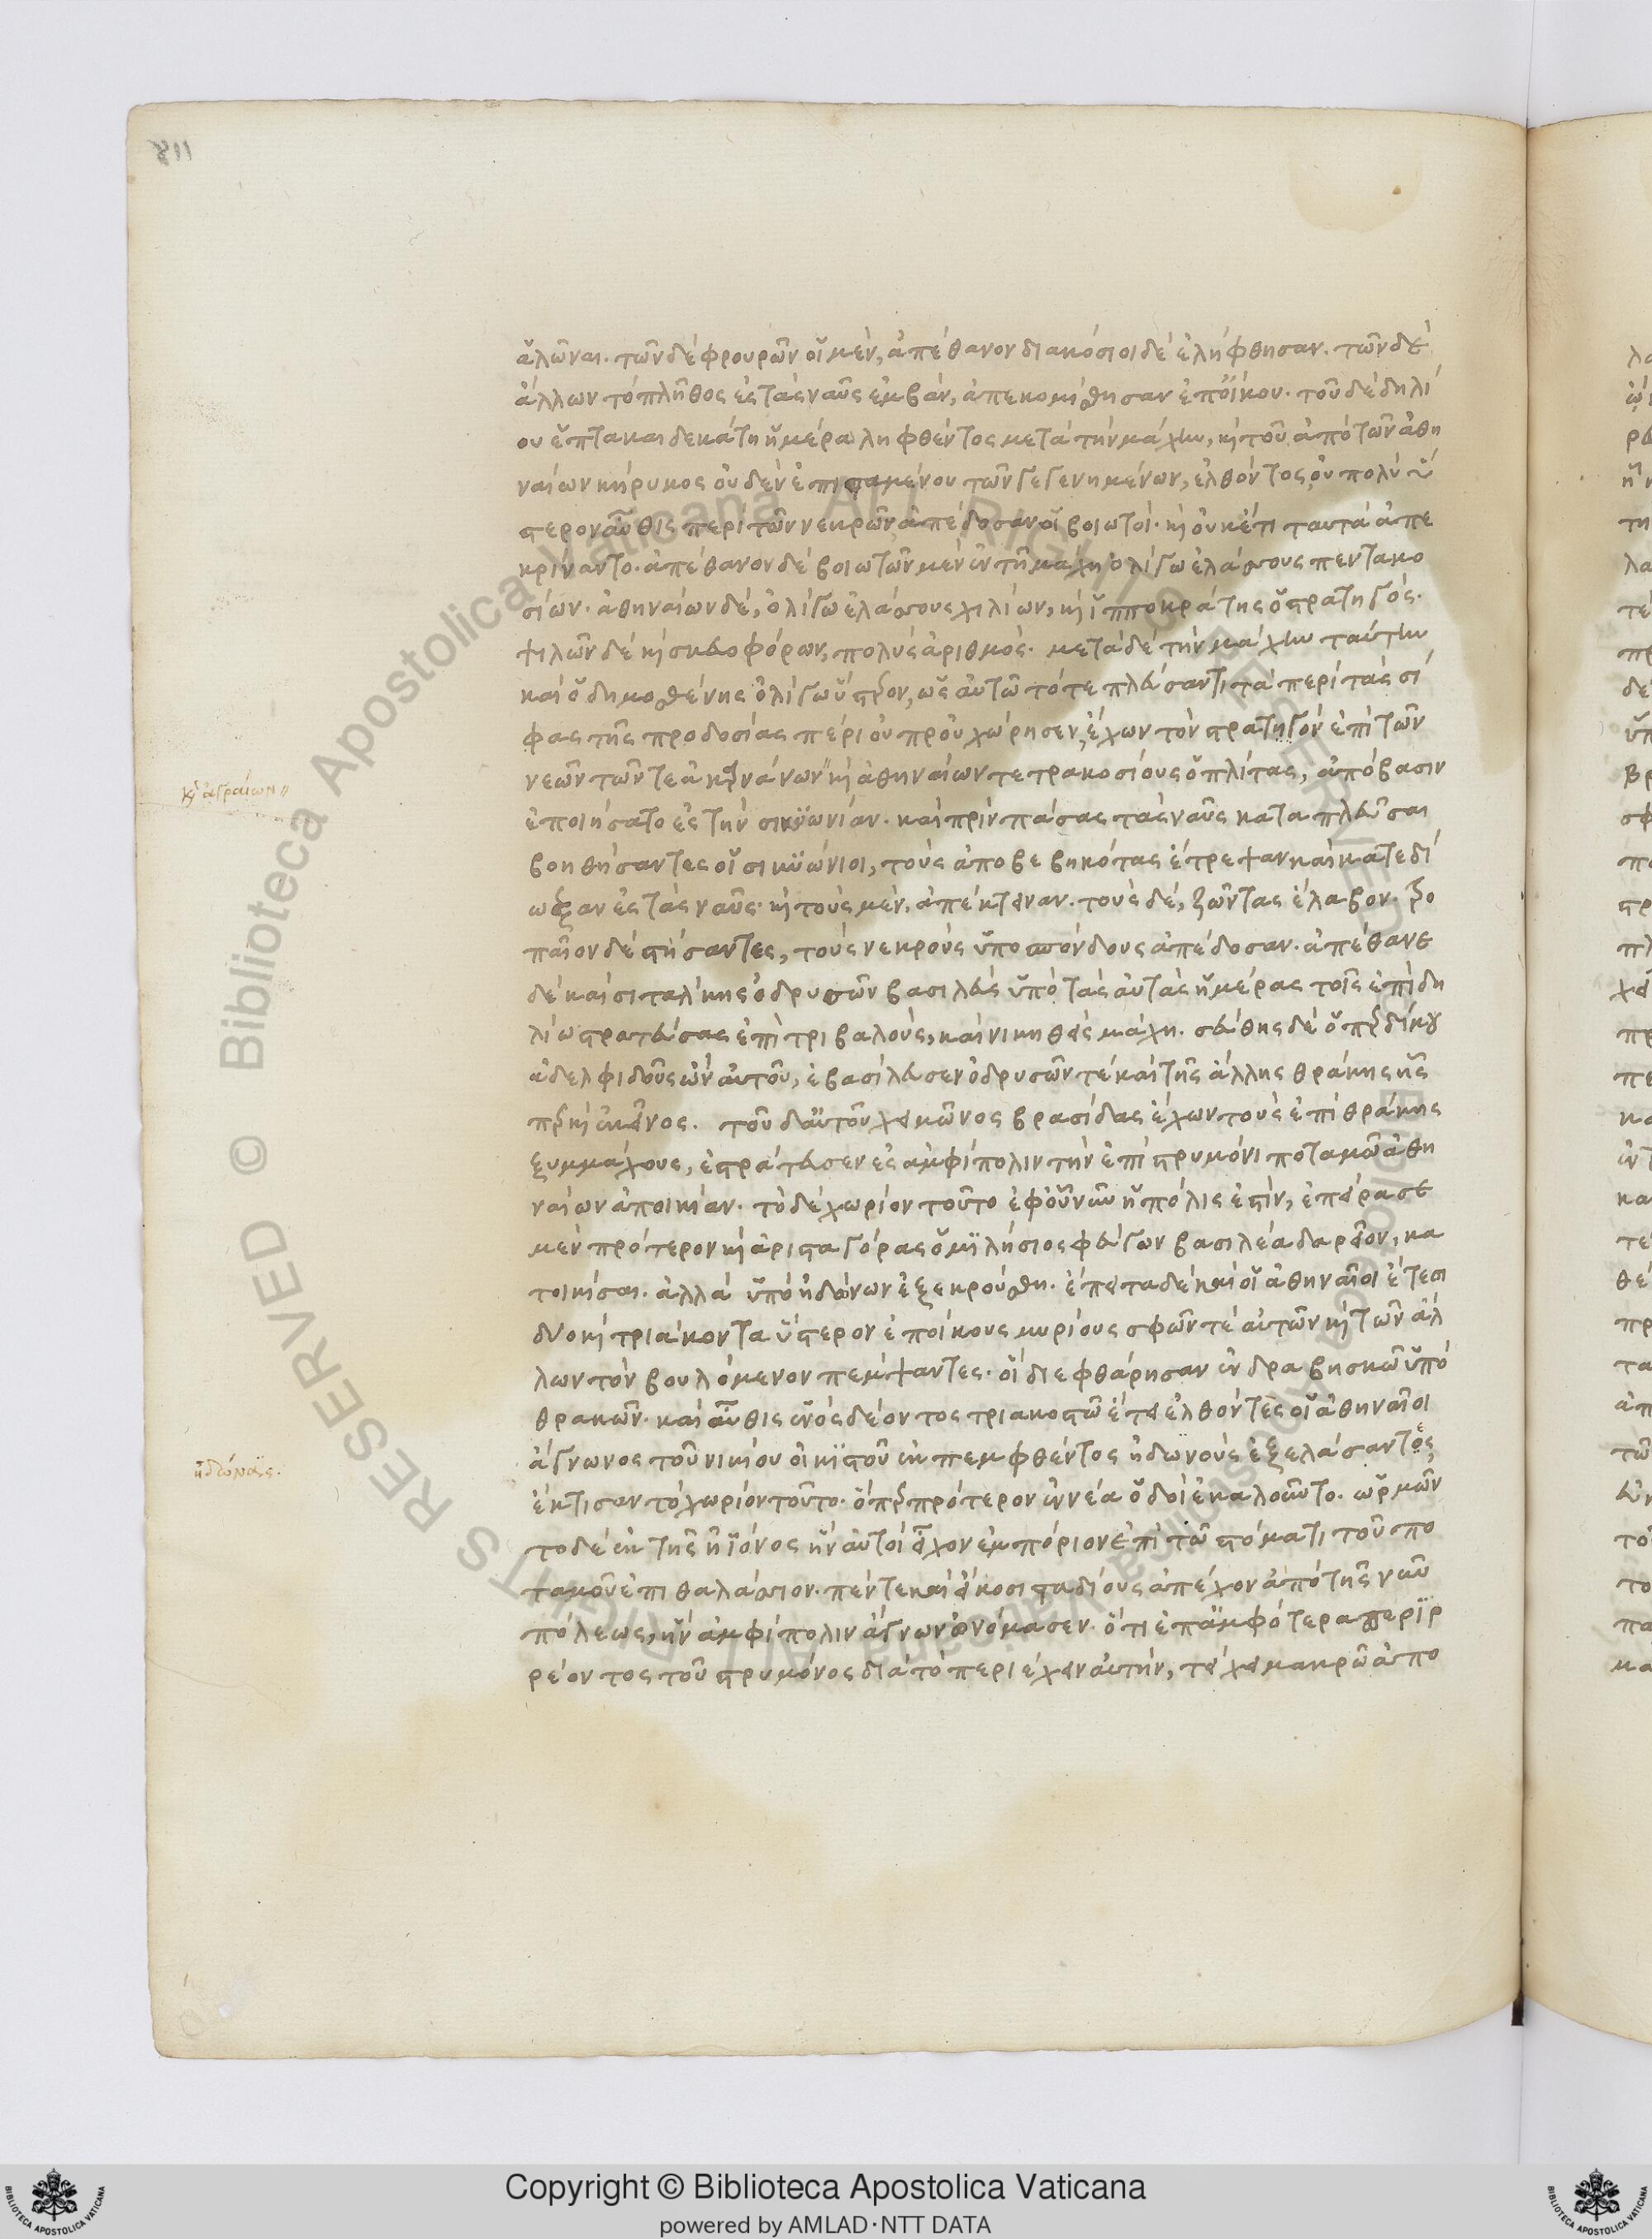 118
ἁλῶναι. τῶν δὲ φρουρῶν οἱ μὲν, ἀπέθανον διακόσιοι δὲ ἐλήφθησαν. τῶν δὲ
ἄλλων τὸ πλῆθος ἐς τὰς ναῦς ἐμβὰν, ἀπεκομίσθησαν ἐπ' οἴκου. τοῦ δὲ δηλί
ου ἑπτακαιδεκάτη ἡμέρα ληφθέντος μετὰ τὴν μάχην, καὶ τοῦ ἀπὸ τῶν ἀθη
ναίων κήρυκος οὐδὲν ἐπισταμένου τῶν γεγενημένων, ἐλθόντος οὐ πολὺ ὕ
στερον αὖθις περὶ τῶν νεκρῶν ἀπέδοσαν οἱ βοιωτοί. καὶ οὐκέτι ταυτὰ ἀπε
κρίναντο. ἀπέθανον δὲ βοιωτῶν μὲν ἐν τῆ μάχη ὀλίγω ἐλάσσους πεντακο
σίων. ἀθηναίων δὲ, ὀλίγω ἐλάσσους χιλίων, καὶ ἱπποκράτης ὁ στρατηγός.
ψιλῶν δὲ καὶ σκευοφόρων, πολὺς ἀριθμός. μετὰ δὲ τὴν μάχην ταύτην
καὶ ὁ δημοσθένης ὀλίγω ὕστερον, ὡς αὐτῶ τότε πλεύσαντι τὰ περὶ τὰς σί
φας τῆς προδοσίας πέρι οὐ προὐχώρησεν, ἔχων τὸν στρατηγὸν ἐπὶ τῶν
νεῶν τῶν τε ἀκαρνάνων καὶ ἀθηναίων τετρακοσίους ὁπλίτας, ἀπόβασιν
καὶ ἀγραίων
ἐποιήσατο ἐς τὴν σικυωνίαν. καὶ πρὶν πάσας τὰς ναῦς καταπλεῦσαι
βοηθήσαντες οἱ σικυώνιοι, τοὺς ἀποβεβηκότας ἔτρεψαν καὶ κατεδί
ωξαν ἐς τὰς ναῦς. καὶ τοὺς μὲν, ἀπέκτειναν. τοὺς δὲ, ζῶντας ἔλαβον. τρο
παῖον δὲ στήσαντες, τοὺς νεκροὺς ὑποσπόνδους ἀπέδοσαν. ἀπέθανε
δὲ καὶ σιτάλκης ὀδρυσῶν βασιλεὺς ὑπὸ τὰς αὐτὰς ἡμέρας τοῖς ἐπὶ δη
λίω στρατεύσας ἐπὶ τριβαλοὺς, καὶ νικηθεὶς μάχη. σεύθης δὲ ὁ περδίκου
ἀδελφιδοῦς ὢν αὐτοῦ, ἐβασίλευσεν ὀδρυσῶν τὲ καὶ τῆς ἄλλης θράκης ἧς
περ καὶ ἐκεῖνος. τοῦ δ' αὐτοῦ χειμῶνος βρασίδας ἔχων τοὺς ἐπὶ θράκης
ξυμμάχους, ἐστράτευσεν ἐς ἀμφίπολιν τὴν ἐπὶ στρυμόνι ποταμῶ ἀθη
ναίων ἀποικίαν. τὸ δὲ χωρίον τοῦτο ἐφ' οὗ νῦν ἡ πόλις ἐστὶν, ἐπείρασε
μὲν πρότερον καὶ ἀρισταγόρας ὁ μιλήσιος φεύγων βασιλέα δαρεῖον, κα
τοικίσαι. ἀλλὰ ὑπὸ ἠδώνων ἐξεκρούσθη. ἔπειτα δὲ καὶ οἱ ἀθηναῖοι ἔτεσι
δύο καὶ τριάκοντα ὕστερον ἐποίκους μυρίους σφῶν τὲ αὐτῶν καὶ τῶν ἄλ
λων τὸν βουλόμενον πέμψαντες. οἳ διεφθάρησαν ἐν δραβησκῶ ὑπὸ
θρακῶν. καὶ αὖθις ἑνὸς δέοντος τριακοστῶ ἔτει ἐλθόντες οἱ ἀθηναῖοι
ἅγνωνος τοῦ νικίου οἰκιστοῦ ἐκπεμφθέντος ἠδωνοὺς ἐξελάσαντες
ἠδώνας.
ἔκτισαν τὸ χωρίον τοῦτο. ὅπερ πρότερον ἐννέα ὁδοὶ ἐκαλοῦντο. ὡρμῶν
το δὲ ἐκ τῆς ἠϊόνος ἣν αὐτοὶ εἶχον ἐμπόριον ἐπὶ τῶ στόματι τοῦ πο
ταμοῦ ἐπιθαλάσσιον. πέντε καὶ εἴκοσι σταδίους ἀπέχον ἀπὸ τῆς νῦν
πόλεως, ἣν ἀμφίπολιν ἅγνων ὠνόμασεν. ὅτι ἐπ' ἀμφότερα περιῤ
ρέοντος τοῦ στρυμόνος διὰ τὸ περιέχειν αὐτὴν, τείχει μακρῶ ἀπο
Copyright © Biblioteca Apostolica Vaticana
powered by AMLAD·NTT DATA